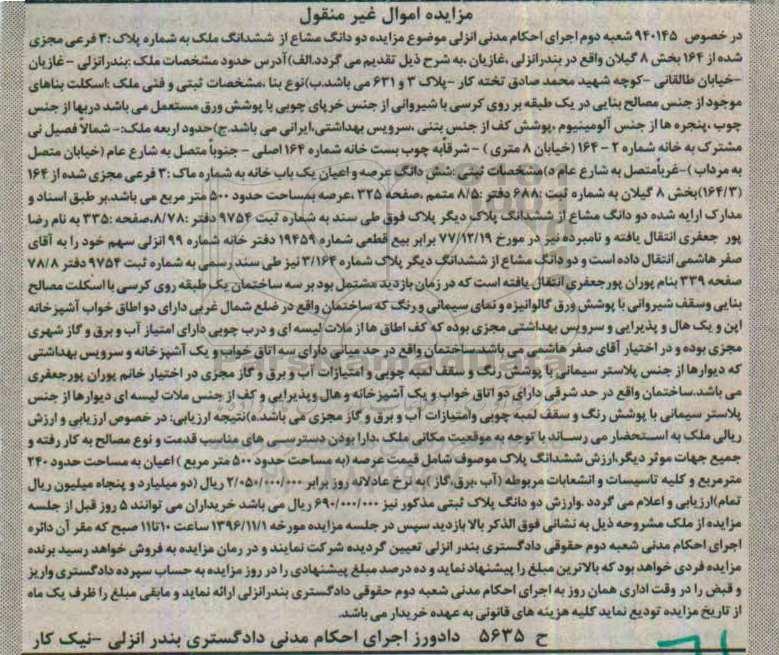 مزایده اموال غیر منقول
در خصوص ۹۴۰۱۴۵ شعبه دوم اجرای احکام مدنی انزلی موضوع مزایده دو دانگ مشاع از ششدانگ ملک به شماره پلاک :۳ فرعی مجزی
شده از ۱۶۴ بخش ۸ گیلان واقع در بندرانزلی ،غازیان ،به شرح ذیل تقدیم می گردد.الف)آدرس حدود مشخصات ملک :بندرانزلی -غازیان
-خیابان طالقانی -کوچه شهید محمد صادق تخته کار -پلاک ۳ و ۶۳۱ می باشد.ب)نوع بنا ،مشخصات ثبتی و فنی ملک :اسکلت بناهای
موجود از جنس مصالح بنایی در یک طبقه بر روی کرسی با شیروانی از جنس خرپای چوبی با پوشش ورق مستعمل می باشد دربها از جنس
چوب ،پنجره ها از جنس آلومینیوم ،پوشش کف از جنس بتنی ،سرویس بهداشتی،ایرانی می باشد.ج)حدود اربعه ملک:- شمالاً فصیل نی
مشترک به خانه شماره ۲ - ۱۶۴ (خیابان ۸ متری ) - شرقاًبه چوب بست خانه شماره ۱۶۴ اصلی - جنوباً متصل به شارع عام (خیابان متصل
به مرداب )-غرباًمتصل به شارع عام د)مشخصات ثبتی :شش دانگ عرصه و اعیان یک باب خانه به شماره ماک : ۳ فرعی مجزی شده از ۱۶۴
(۱۶۴/۳)بخش ۸ گیلان به شماره ثبت :۶۸۸ دفتر :۸/۵ متمم ،صفحه ۳۲۵ ،عرصه بمساحت حدود ۵۰۰ متر مربع می باشد.بر طبق اسناد و
مدارک ارایه شده دو دانگ مشاع از ششدانگ پلاک دیگر پلاک فوق طی سند به شماره ثبت ۹۷۵۴ دفتر :۸/۷۸،صفحه :۳۳۵ به نام رضا
پور جعفری انتقال یافته و نامبرده نیز در مورخ ۷۷/۱۲/۱۹ برابر بیع قطعی شماره ۱۹۴۵۹ دفتر خانه شماره ۹۹ انزلی سهم خود را به آقای
صفر هاشمی انتقال داده است و دو دانگ مشاع از ششدانگ دیگر پلاک شماره ۳/۱۶۴ نیز طی سند رسمی به شماره ثبت ۹۷۵۴ دفتر ۷۸/۸
صفحه ۳۳۹ بنام پوران پورجعفری انتقال یافته است که در زمان بازدید مشتمل بود بر سه ساختمان یک طبقه روی کرسی با اسکلت مصالح
بنایی وسقف شیروانی با پوشش ورق گالوانیزه و نمای سیمانی و رنگ که ساختمان واقع در ضلع شمال غربی دارای دو اطاق خواب آشپزخانه
اپن و یک هال و پذیرایی و سرویس بهداشتی مجزی بوده که کف اطاق ها از ملات لیسه ای و درب چوبی دارای امتیاز آب و برق و گاز شهری
مجزی بوده و در اختیار آقای صفر هاشمی می باشد.ساختمان واقع در حد میانی دارای سه اتاق خواب و یک آشپزخانه و سرویس بهداشتی
که دیوارها از جنس پلاستر سیمانی با پوشش رنگ و سقف لمبه چوبی و امتیازات آب و برق و گاز مجزی در اختیار خانم پوران پورجعفری
می باشد.ساختمان واقع در حد شرقی دارای دو اتاق خواب و یک آشپزخانه و هال وپذیرایی و کف از جنس ملات لیسه ای دیوارها از جنس
پلاستر سیمانی با پوشش رنگ و سقف لمبه چوبی وامتیازات آب و برق و گاز مجزی می باشد.ه)نتیجه ارزیابی: در خصوص ارزیابی و ارزش
ریالی ملک به استحضار می رساند با توجه به موقعیت مکانی ملک ،دارا بودن دسترسی های مناسب قدمت و نوع مصالح به کار رفته و
جمیع جهات موثر دیگر،ارزش ششدانگ پلاک موصوف شامل قیمت عرصه (به مساحت حدود ۵۰۰ متر مربع ) اعیان به مساحت حدود ۲۴۰
مترمربع و کلیه تاسیسات و انشعابات مربوطه (آب ،برق،گاز)به نرخ عادلانه روز برابر ۲/۰۵۰/۰۰۰/۰۰۰ ریال (دو میلیارد و پنجاه میلیون ریال
تمام)ارزیابی و اعلام می گردد .وارزش دو دانگ پلاک ثبتی مذکور نیز ۶۹۰/۰۰۰/۰۰۰ ریال می باشد خریداران می توانند ۵ روز قبل از جلسه
مزایده از ملک مشروحه ذیل به نشانی فوق الذکر بالا بازدید سپس در جلسه مزایده مورخه ۱۳۹۶/۱۱/۱ ساعت ۱۰تا۱۱ صبح که مقر آن دائره
اجرای احکام مدنی شعبه دوم حقوقی دادگستری بندر انزلی تعیین گردیده شرکت نمایند و در زمان مزایده به فروش خواهد رسید برنده
مزایده فردی خواهد بود که بالاترین مبلغ را پیشنهاد نماید و ده درصد مبلغ پیشنهادی را در روز مزایده به حساب سپرده دادگستری واریز
و قبض را در وقت اداری همان روز به اجرای احکام مدنی شعبه دوم حقوقی دادگستری بندرانزلی ارائه نماید و مابقی مبلغ را ظرف یک ماه
از تاریخ مزایده تودیع نماید کلیه هزینه های قانونی به عهده خریدار می باشد.
ح ۵۶۳۵ دادورز اجرای احکام مدنی دادگستری بندر انزلی -نیک کار